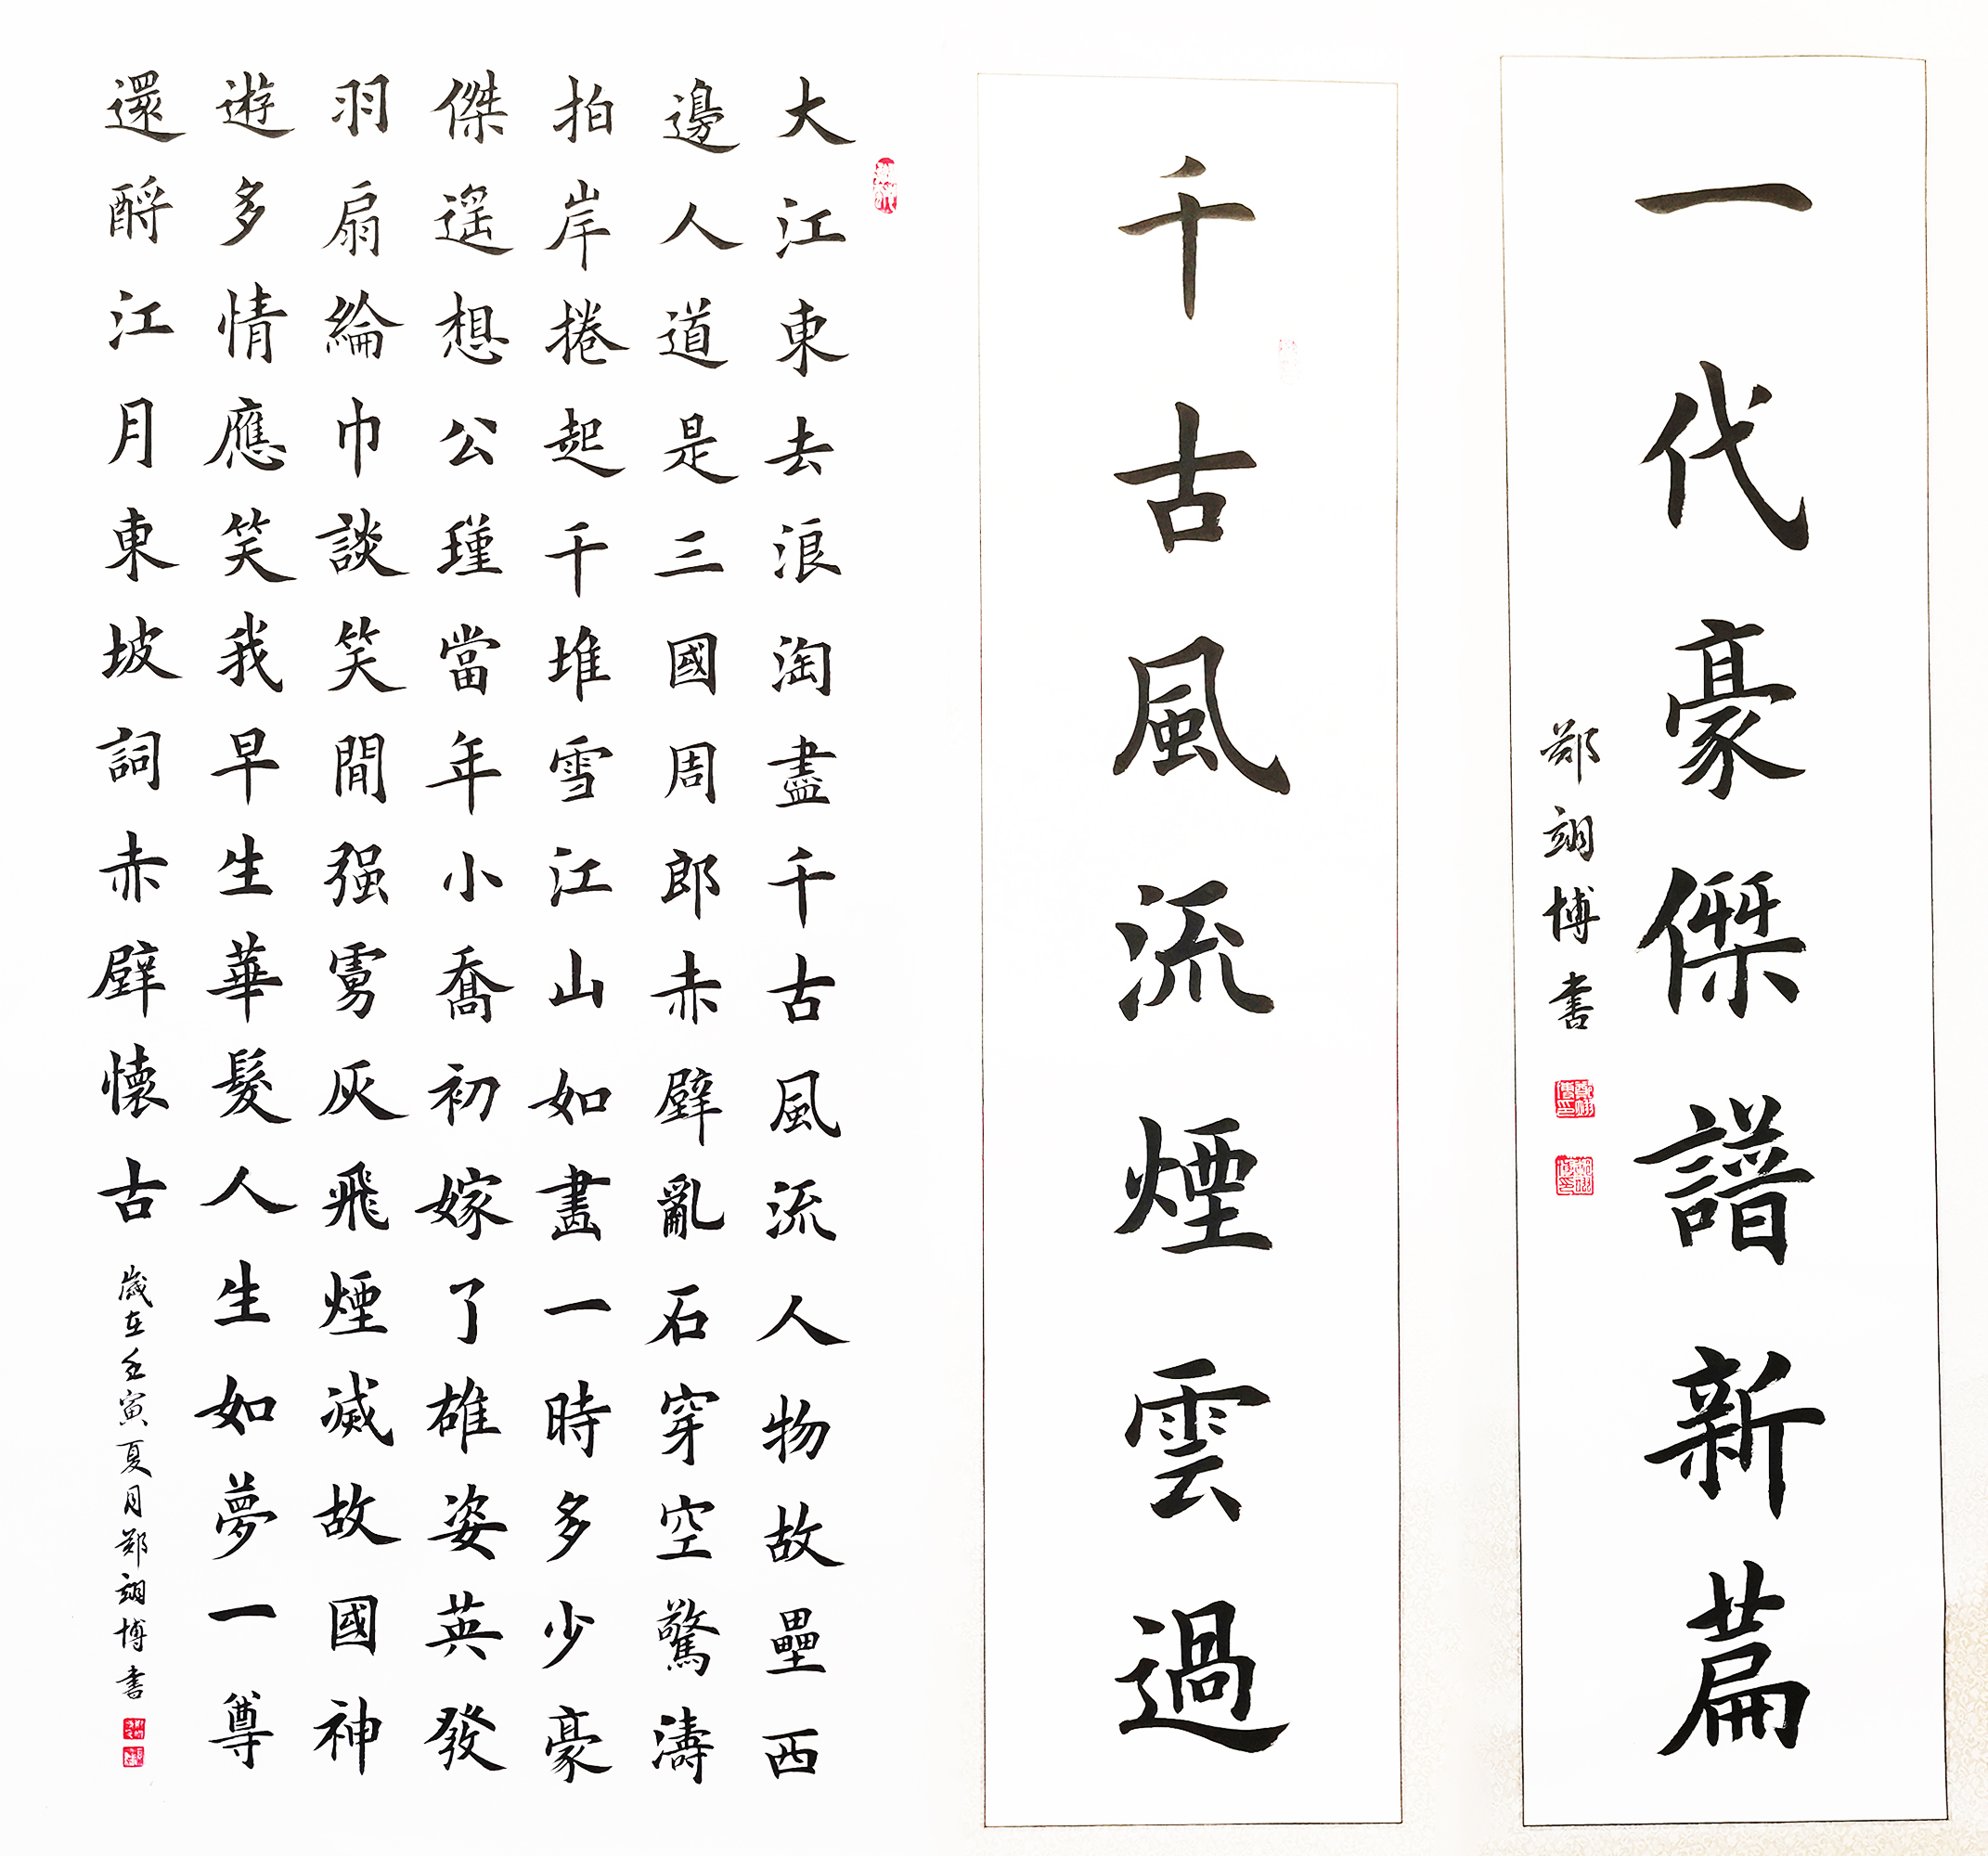 一代豪傑譜新篇
鄭翊博書
千古風流煙雲過
大江東去浪淘盡千古風流人物故壘西
邊人道是三國周郎赤壁亂石穿空驚濤
拍岸捲起千堆雪江山如畫一時多少豪
傑遙想公瑾當年小喬初嫁了雄姿英發
羽扇綸巾談笑閒强虜灰飛煙滅故國神
遊多情應笑我早生華髮人生如夢一尊
還酹江月東坡詞赤壁懷古
歲在壬寅夏月鄭翊博書